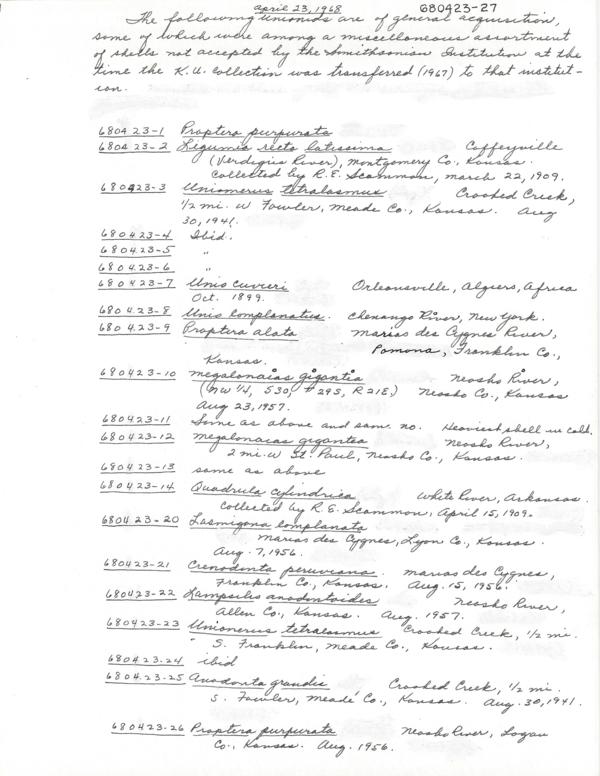 april 23, 1968 680423-27
The following unionids are of general acquisition,
some of which were among a miscellaneous assortment
of shells not accepted by the Smithsonian Institution at the
time the K.U. collection was transferred (1967) to that institut-
ion.
680423-1 Proptera purpurata
680423-2 Ligumia recta latissima Coffeyville
(Verdigris River), Montgomery Co., Kansas.
Collected by R.E. Scammon, March 22, 1909.
680423-3 Uniomerus tetralasmus Crooked Creek,
1/2 mi. W Fowler, Meade Co., Kansas. Aug
30, 1941.
680423-4 Ibid.
680423-5 "
680423-6 "
680423-7 Unio cuvieri Orleansville, Algiers, Africa
Oct. 1899.
680423-8 Unio complanatus. Chenango River, New York.
680423-9 Proptera alata Marias des Cygnes River,
Pomona, Franklin Co.,
Kansas.
680423-10 Megalonaias gigantia Neosho River,
(NW 1/4, S30, T29S, R21E.) Neosho Co., Kansas
Aug 23, 1957.
680423-11 Same as above and sam. no. Heaviest shell in coll.
680423-12 Megalonaias gigantea Neosho River,
2 mi. W St. Paul, Neosho Co., Kansas.
680423-13 same as above
680423-14 Quadrula cylindrica White River, Arkansas.
Collected by R.E. Scammon, April 15, 1909.
680423-20 Lasmigona complanata
Marias des Cygnes, Lyon Co., Kansas.
Aug. 7, 1956.
680423-21 Crenodonta peruviana. Marias des Cygnes,
Franklin Co., Kansas. Aug. 15, 1956.
680423-22 Lampsilis anodontoides Neosho River,
Allen Co., Kansas. Aug. 1957.
680423-23 Uniomerus tetralasmus Crooked Creek, 1/2 mi.
S. Franklin, Meade Co., Kansas.
680423-24 ibid
680423-25 Anodonta grandis Crooked Creek, 1/2 mi.
S. Fowler, Meade Co., Kansas. Aug. 30, 1941.
680423-26 Proptera purpurata Neosho River, Logan
Co., Kansas. Aug. 1956.